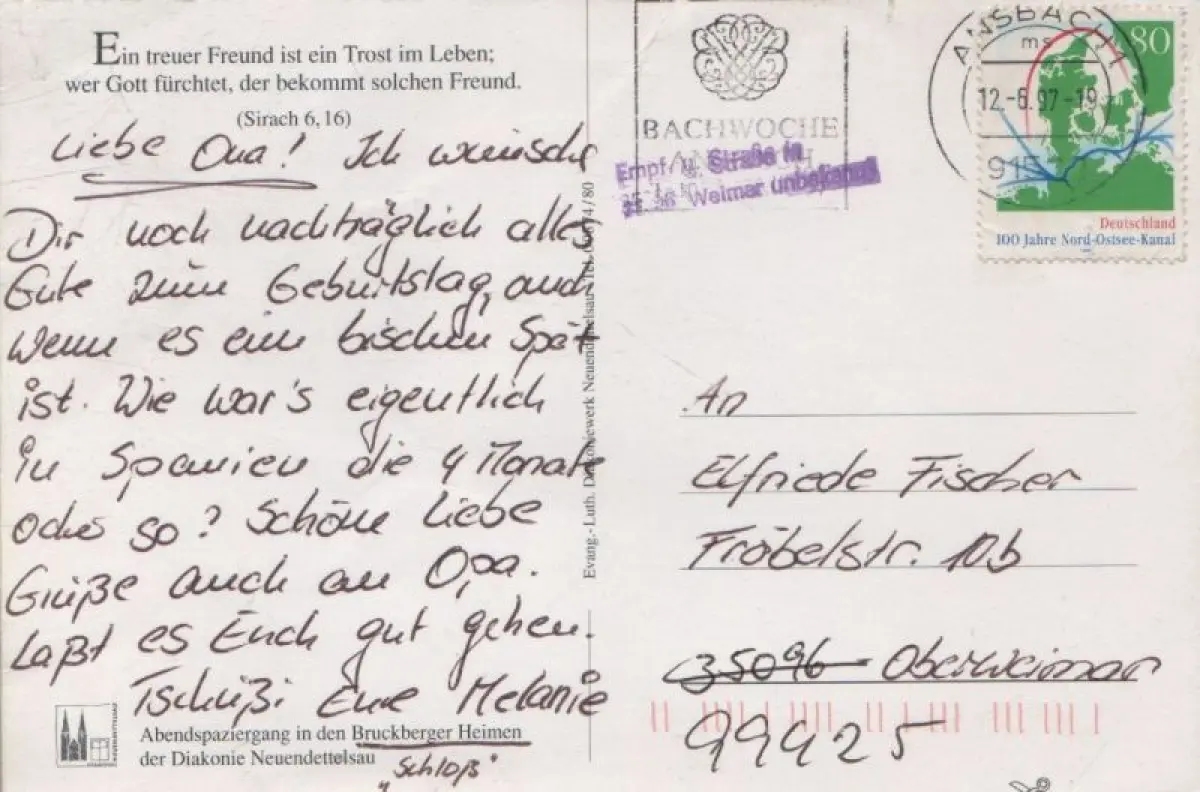 Ein treuer Freund ist ein Trost im Leben;
wer Gott fürchtet, der bekommt solchen Freund.
(Sirach 6,16)
Liebe Oma! Ich wünsche
Dir noch nachträglich alles
Gute zum Geburtstag, auch
wenn es ein bischen spät
ist. Wie war's eigentlich
in Spanien die 4 Monate
oder so? Schöne Liebe
Grüße auch an Opa.
Laßt es Euch gut gehen.
Tschüßi Eure Melanie
Abendspaziergang in den Bruckberger Heimen
der Diakonie Neuendettelsau
"Schloß"
Evang.-Luth. Diakoniewerk Neuendettelsau
BACHWOCHE
Empf. Straße in
Weimar unbekannt
ANSBACH 1
ms
12.-6.97-19
915
80
Deutschland
100 Jahre Nord-Ostsee-Kanal
An
Elfriede Fischer
Fröbelstr. 10b
35096 Oberweimar
99425